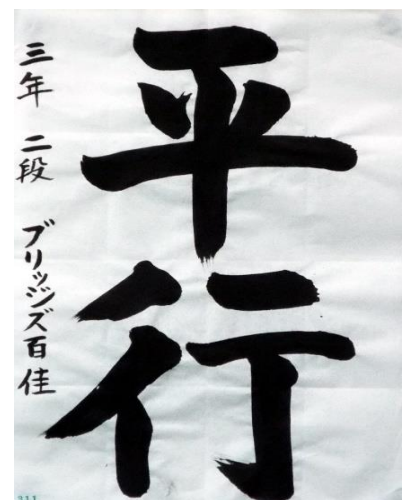 平行
三年 二段 ブリッジズ百佳
311